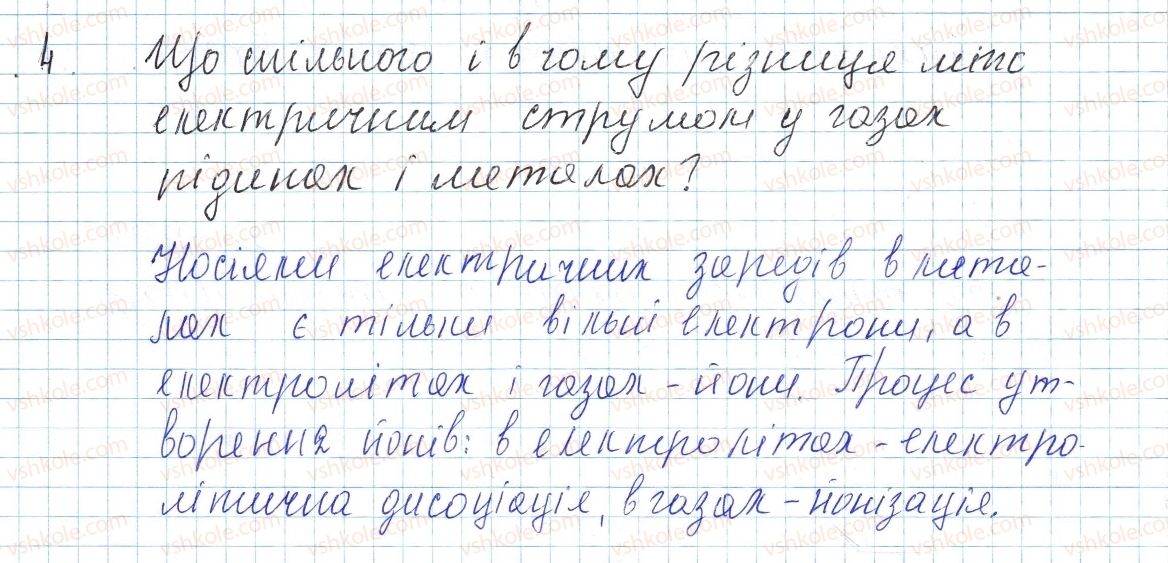 4. Що спільного і в чому різниця між
електричним струмом у газах
рідинах і металах?
Носіями електричних зарядів в мета-
лах є тільки вільні електрони, а в
електролітах і газах - йони. Процес ут-
ворення йонів: в електролітах - електро-
літична дисоціація, в газах - йонізація.